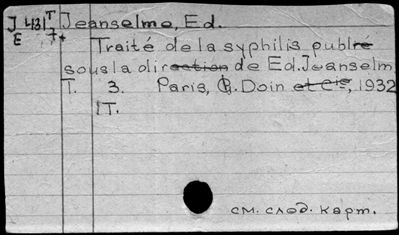 J 431 T Jeanselme, Ed.
E 7+
Traité de la syphilis publré
sous la direction de Ed. Jeanselm
T. 3. Paris, G. Doin et Cie, 1932
1T.
см. след. карт.